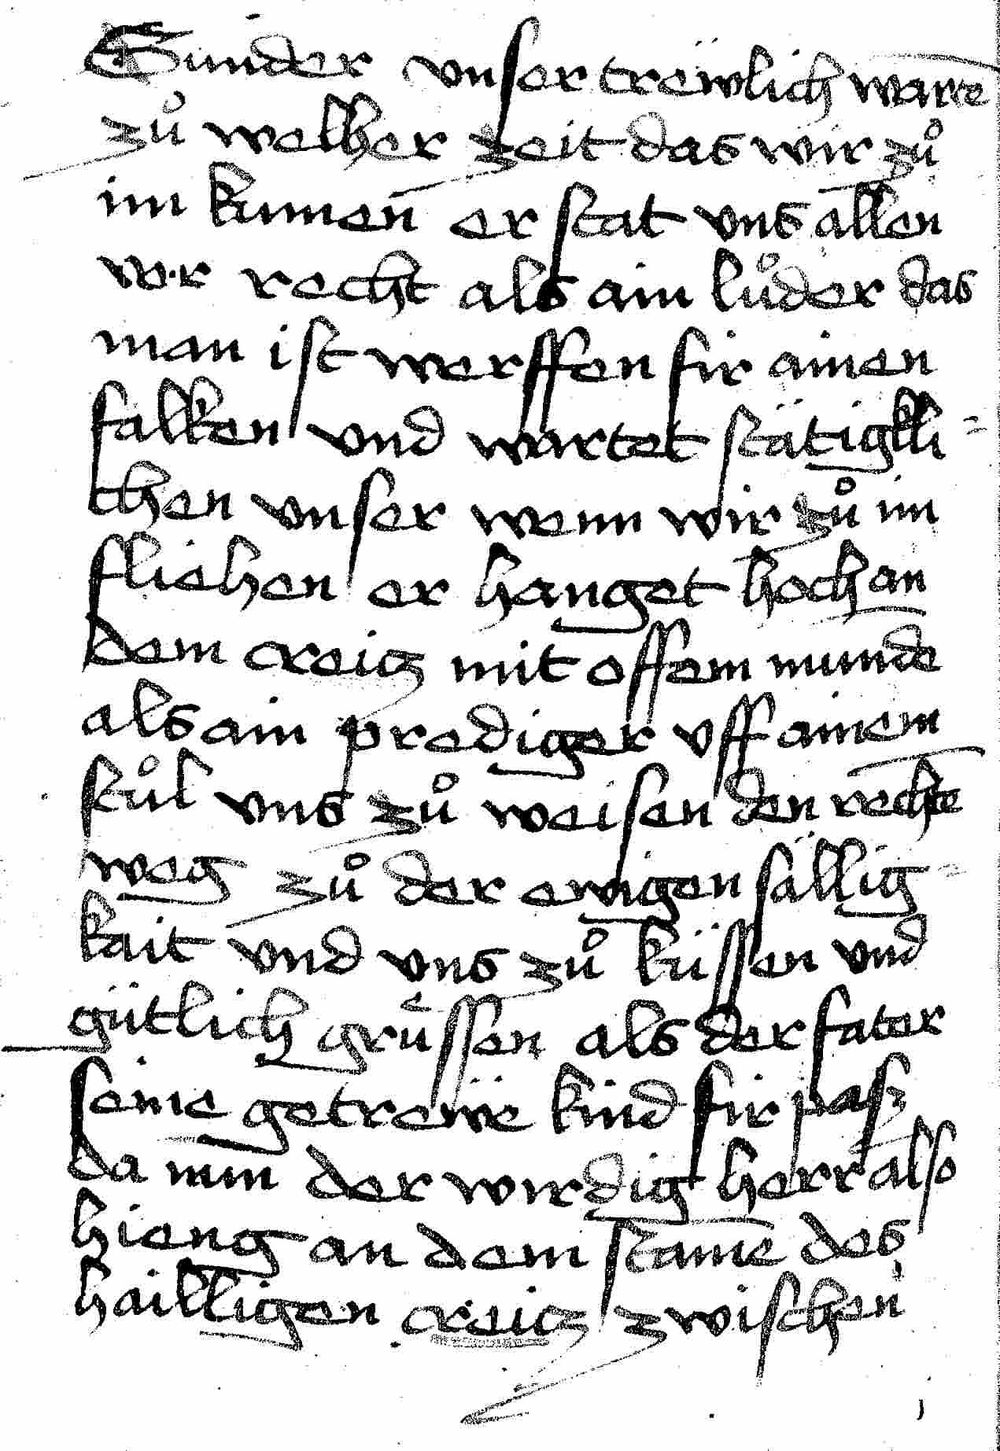 Sunder vnser trëwlich warte
zů welher zeit das wir zů
im kumen̄ er stat vns allen
vor recht als ain lůder das
man ist werffen fir ainen
falken vnd wartet stätigkli=
chen vnser wenn wir zů im
fliehen er hanget hoch an
dem creitz mit offem munde
als ain prediger vff ainem
stůl vns zů weisen den rechtē
weg zů der ewigen sällig=
kait vnd vns zů küssen vnd
gütlich grüssen als der fater
seine getrewë kind fir pasz
da nun der wirdig herr also
hieng an dem stamē des
hailligen creitz zwischen